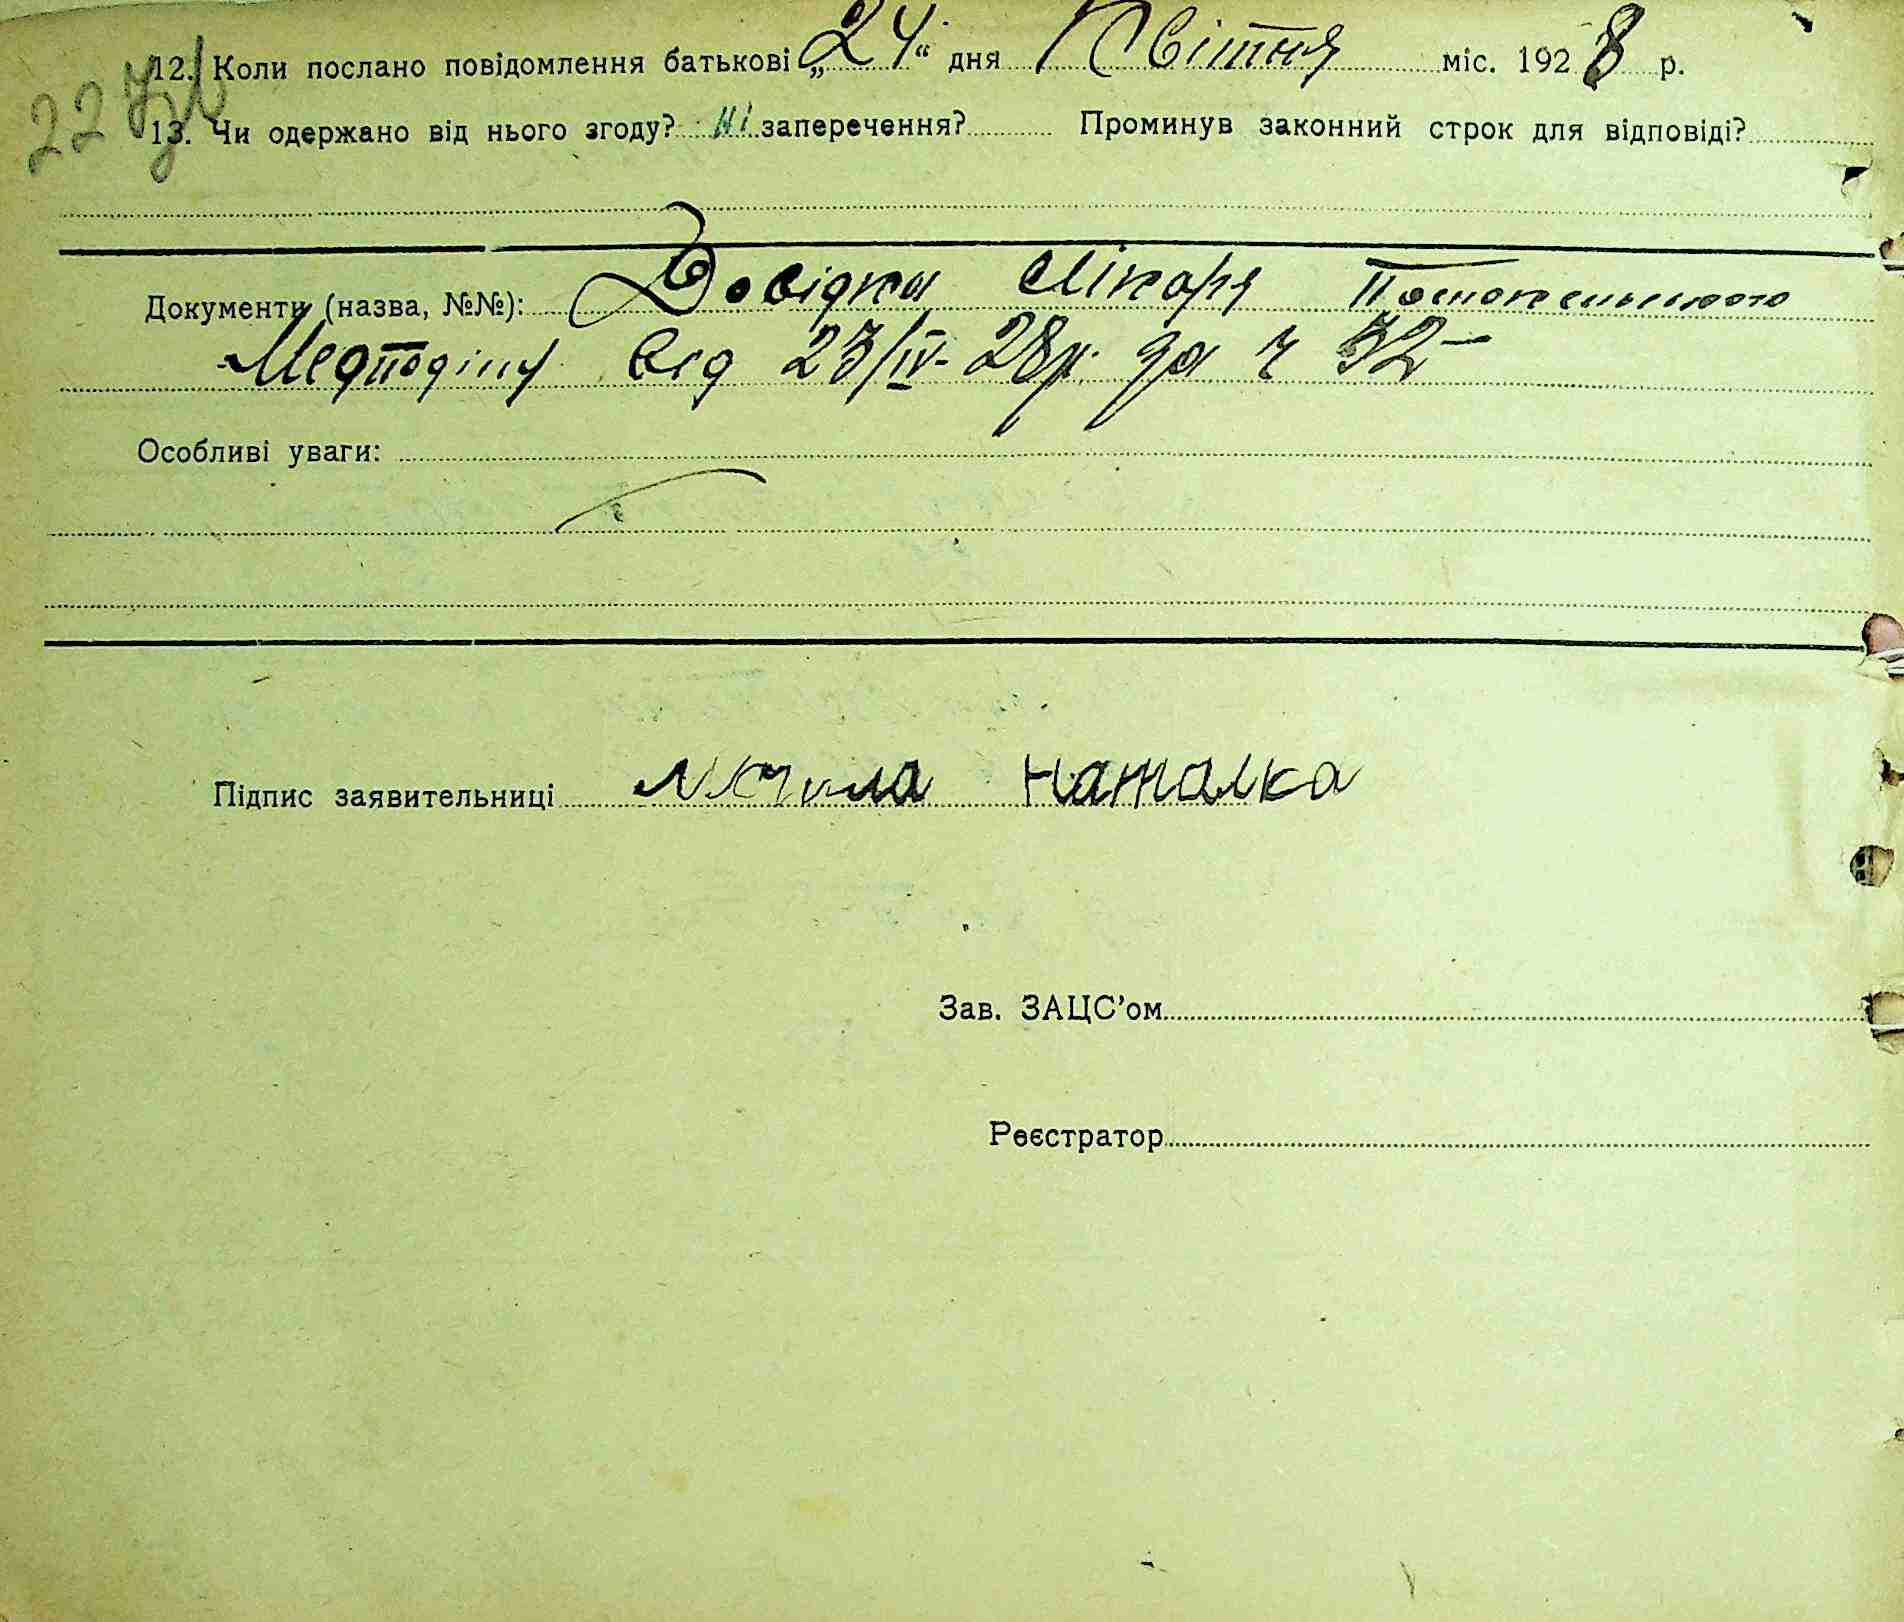 12. Коли послано повідомлення батькові „24“ дня Квітня міс. 1928 р.
227
13. Чи одержано від нього згоду? ні заперечення? Проминув законний строк для відповіді?
Документи (назва, №№): Довідка Лікаря
Медподілу від 23/IV-28р. за ч 32-
Особливі уваги:
Підпис заявительниці Наталка
Зав. ЗАЦС’ом
Реєстратор